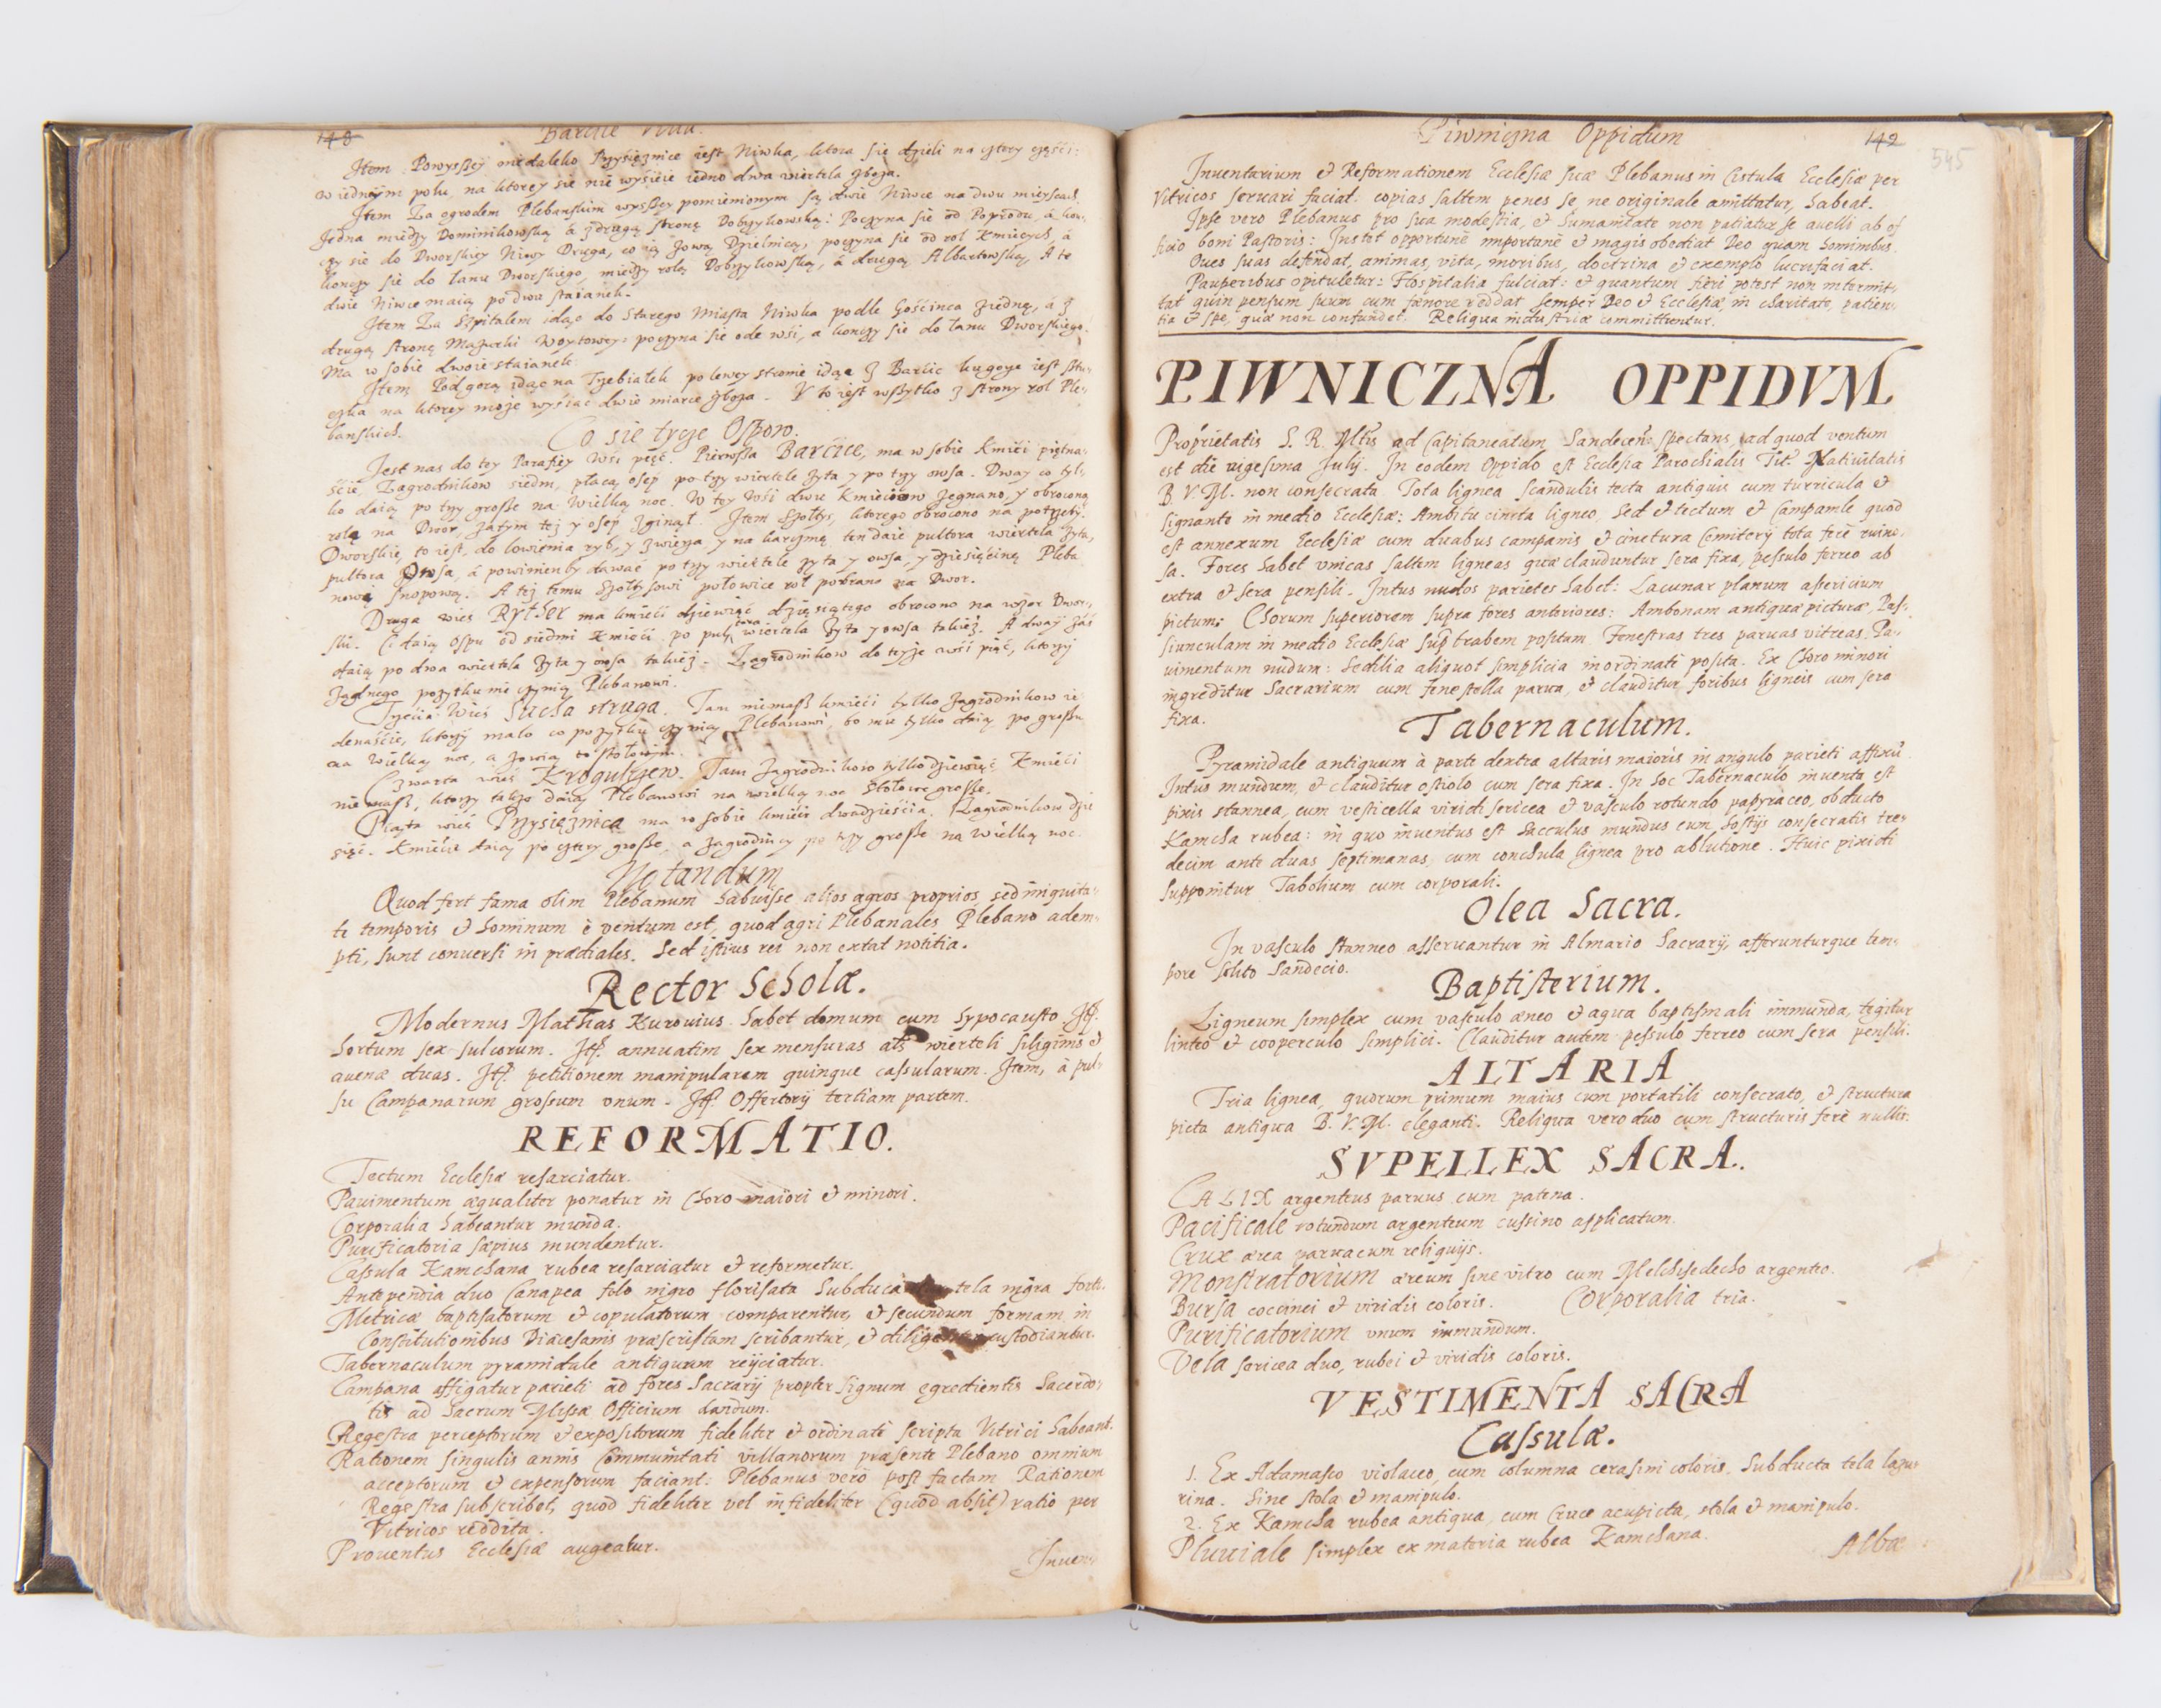 148
Barcice Villa.
Item Powyssey niedaleko Przysieznice iest Niwka, ktora sie dzieli na cztery części:
w iednym polu, na ktorey sie nie wysieie iedno dwa wiertela zboza.
Item Za ogrodem Plebanskim wysszey pomienionym są dwie Niwce na dwu mieyscach.
Jedna miedzy Dominikowską á z drugą stronę Dobrzykowską: Poczyna sie od Poprodu, á kon-
czy sie do Dworskiey Niwy Druga, co ią zową Dzielnicą, poczyna sie od rol Kmiecych, á
konczy sie do łanu Dworskiego, miedzy rolą Dobrzykowską, á drugą Albertowską, A te
dwie Niwce maią po dwu staianek.
Item Za Szpitalem idąc do Starego Miasta Niwka podle Gościnca ziednę, á z
drugą stronę Mazurki Woytowey: poczyna sie ode wsi, a konczy sie do łanu Dworskiego.
Ma w sobie dwoie staianek.
Item Pod gorą idąc na Trzebiałek po lewey stronie idąc z Barcic kugoye iest sztu-
czka na ktorey moze wysiac dwie miarce zboza. Y to iest wszytko z strony rol Ple-
banskich.
Co sie tycze Osporo.
Jest nas do tey Parafiey Wsi pięć. Pierwssa Barcice, ma w sobie Kmieci piętna-
ście, Zagrodnikow siedm, płacą osep po trzy wiertele zyta y po trzy owsa. Dway co tyl-
ko daią po trzy grosse na Wielką noc. W tey Wsi dwu Kmieciow zegnano, y obrocono
rolą na Dwor, zatym tez y osep zginął. Item Szołtys, ktorego obrocono na potrzeby
Dworskie, to iest, do łowienia ryb, y zwierza, y na karczmę ten daie pultora wiertela zyta,
pultora Owsa, á powinienby dawać po trzy wiertele zyta y owsa, y dziesięcinę Pleba
nowi snopową. A tez temu Szołtysowi połowice rol pobrano na Dwor.
Druga wies Ryther ma kmieci dziewięć dziesiątego obrocono na wzor Dwor-
ski. Ci daią Ospu od siedmi Kmieci po puł tora wiertela Zyta y owsa takiez. A dway zaś
daią po dwa wiertela Zyta y owsa takiez. Zagrodnikow do teyze wsi pięć, ktorzy
żadnego pozytku nie czynią Plebanowi.
Trzecia Wieś Sucha struga. Tam niemasz kmieci tylko zagrodnikow ie
denaście, ktorzy mało co pozytku czynią Plebanowi, bo nie tylko daią po grossu
na Wielką noc, a zowią to stołowym.
Czwarta wieś Kroguliczew. Tam zagrodnikow tylko dziewięć Kmieci
nie masz, ktorzy takzo daią Plebanowi na wielką noc Stołowe grosse.
Piąta wieś Przysieznica ma w sobie kmieci dwadzieścia. Zagrodnikow dzie
sięć. Kmiecie daią po cztery grosse, a zagrodnicy po trzy grosse na Wielką noc.
Notandum
Quod fert fama olim Plebanum habuisse alios agros proprios, sed iniquita-
te temporis & hominum è ventum est, quod agri Plebanales Plebano adem-
pti, sunt conuersi in prædiales. Sed istius rei non extat notitia.
Rector Scholæ.
Modernus Mathias Kurouius habet domum cum hypocausto. Itē.
hortum sex sulcorum. Itē. annuatim sex mensuras als wierteli siliginis &
auenæ duas. Itē. petitionem manipularem quinque cassularum. Item, à pul-
su Campanarum grossum vnum. Itē. Offertorij tertiam partem.
REFORMATIO.
Tectum Ecclesiæ resarciatur.
Pauimentum æqualiter ponatur in Choro maiori & minori.
Corporalia habeantur munda.
Purificatoria sæpius mundentur.
Cassula Kamchana rubea resarciatur & reformetur.
Antependia duo Canapea filo nigro florisata Subduca tela nigra forti.
Metricæ baptisatorum & copulatorum comparentur, & secundum formam in
Constitutionibus Diæcesanis præscriptam scribantur, & diligenter custodiantur.
Tabernaculum pyramidale antiquum reijciatur.
Campana affigatur parieti ad fores Sacrarij propter signum egredientis Sacerdo-
tis ad Sacrum Missæ Officium dandum.
Regestra perceptorum & expositorum fideliter & ordinatè scripta Vitrici habeant.
Rationem singulis annis Communitati villanorum præsente Plebano omnium
acceptorum & expensorum faciant: Plebanus verò post factam Rationem
Regestra subscribet, quòd fideliter vel infideliter (quod absit) ratio per
Vitricos reddita.
Prouentus Ecclesiæ augeatur.
Inuen-
Piwniczna Oppidum
149
545
Inuentarium & Reformationem Ecclesiæ suæ Plebanus in Cistula Ecclesiæ per
Vitricos seruari faciat: copias saltem penes se, ne originale amittatur, habeat.
Ipse vero Plebanus pro sua modestia, & humanitate non patiatur se auelli ab of
ficio boni Pastoris: Instet opportunè importunè & magis obediat Deo quam hominibus.
Oues suas defendat, animas, vita, moribus, doctrina & exemplo lucrifaciat.
Pauperibus opituletur: Hospitalia fulciat: & quantum fieri potest non intermit-
tat quin pensum suum cum fænore reddat semper Deo & Ecclesiæ, in charitate, patien-
tia & spe, quæ non confundet. Reliqua industriæ committuntur.
PIWNICZNA OPPIDVM
Proprietatis S. R. Mtis ad Capitaneatum Sandecen: spectans, ad quod ventum
est die vigesima Julij. In eodem Oppido est Ecclesia Parochialis Tit. Natiuitatis
B. V. M. non consecrata. Tota lignea scandulis tecta antiquis cum turricula &
signanto in medio Ecclesiæ: Ambitu cincta ligneo, Sed & tectum & Campanile quod
est annexum Ecclesiæ cum duabus campanis & cinctura Cœmiterij tota ferè ruino-
sa. Fores habet vnicas saltem ligneas quæ clauduntur sera fixa, pessulo ferreo ab
extra & sera pensili. Intus nudos parietes habet: Lacunar planum asericium
pictum: Chorum superiorem supra fores anteriores: Ambonam antiquæ picturæ, Pas-
siunculam in medio Ecclesiæ sup trabem positam Fenestras tres paruas vitreas, Pa-
uimentum nudum: Sedilia aliquot simplicia inordinatè posita. Ex Choro minori
ingreditur Sacrarium cum fenestella parua, & clauditur foribus ligneis cum sera
fixa.
Tabernaculum.
Pyramidale antiquum à parte dextra altaris maioris in angulo parieti affixū
Intus mundum, & clauditur ostiolo cum sera fixa. In hoc Tabernaculo inuenta est
pixis stannea, cum vesticella viridi sericea & vasculo rotundo papyraceo, obducto
Kamcha rubea: in quo inuentus est Sacculus mundus cum hostijs consecratis tre-
decim ante duas septimanas, cum conchula lignea pro ablutione. Huic pixidi
supponitur Tabolium cum corporali.
Olea Sacra.
In vasculo stanneo asseruantur in Almario Sacrarij, afferunturque tem-
pore solito Sandecio.
Baptisterium.
Ligneum simplex cum vasculo æneo & aqua baptismali immunda, tegitur
linteo & cooperculo simplici. Clauditur autem pessulo ferreo cum sera pensili.
ALTARIA
Tria lignea, quorum primum maius cum portatili consecrato, & structura
picta antiqua B. V. M. eleganti. Reliqua vero duo cum structuris ferè nullis.
SVPELLEX SACRA.
CALIX argenteus paruus cum patena.
Pacificale rotundum argenteum cussino applicatum.
Crux ærea parua cum reliquijs.
Monstratorium æreum sine vitro cum Melchisedecho argenteo.
Bursa coccinei & viridis coloris. Corporalia tria.
Purificatorium vnum immundum.
Vela sericea duo, rubei & viridis coloris.
VESTIMENTA SACRA
Cassulæ.
1. Ex Adamasco violaceo, cum columna cerasini coloris. Subducta tela lazu-
rina. Sine stola & manipulo.
2. Ex Kamcha rubea antiqua, cum Cruce acupicta, stola & manipulo.
Pluuiale simplex ex materia rubea Kamchana.
Albæ